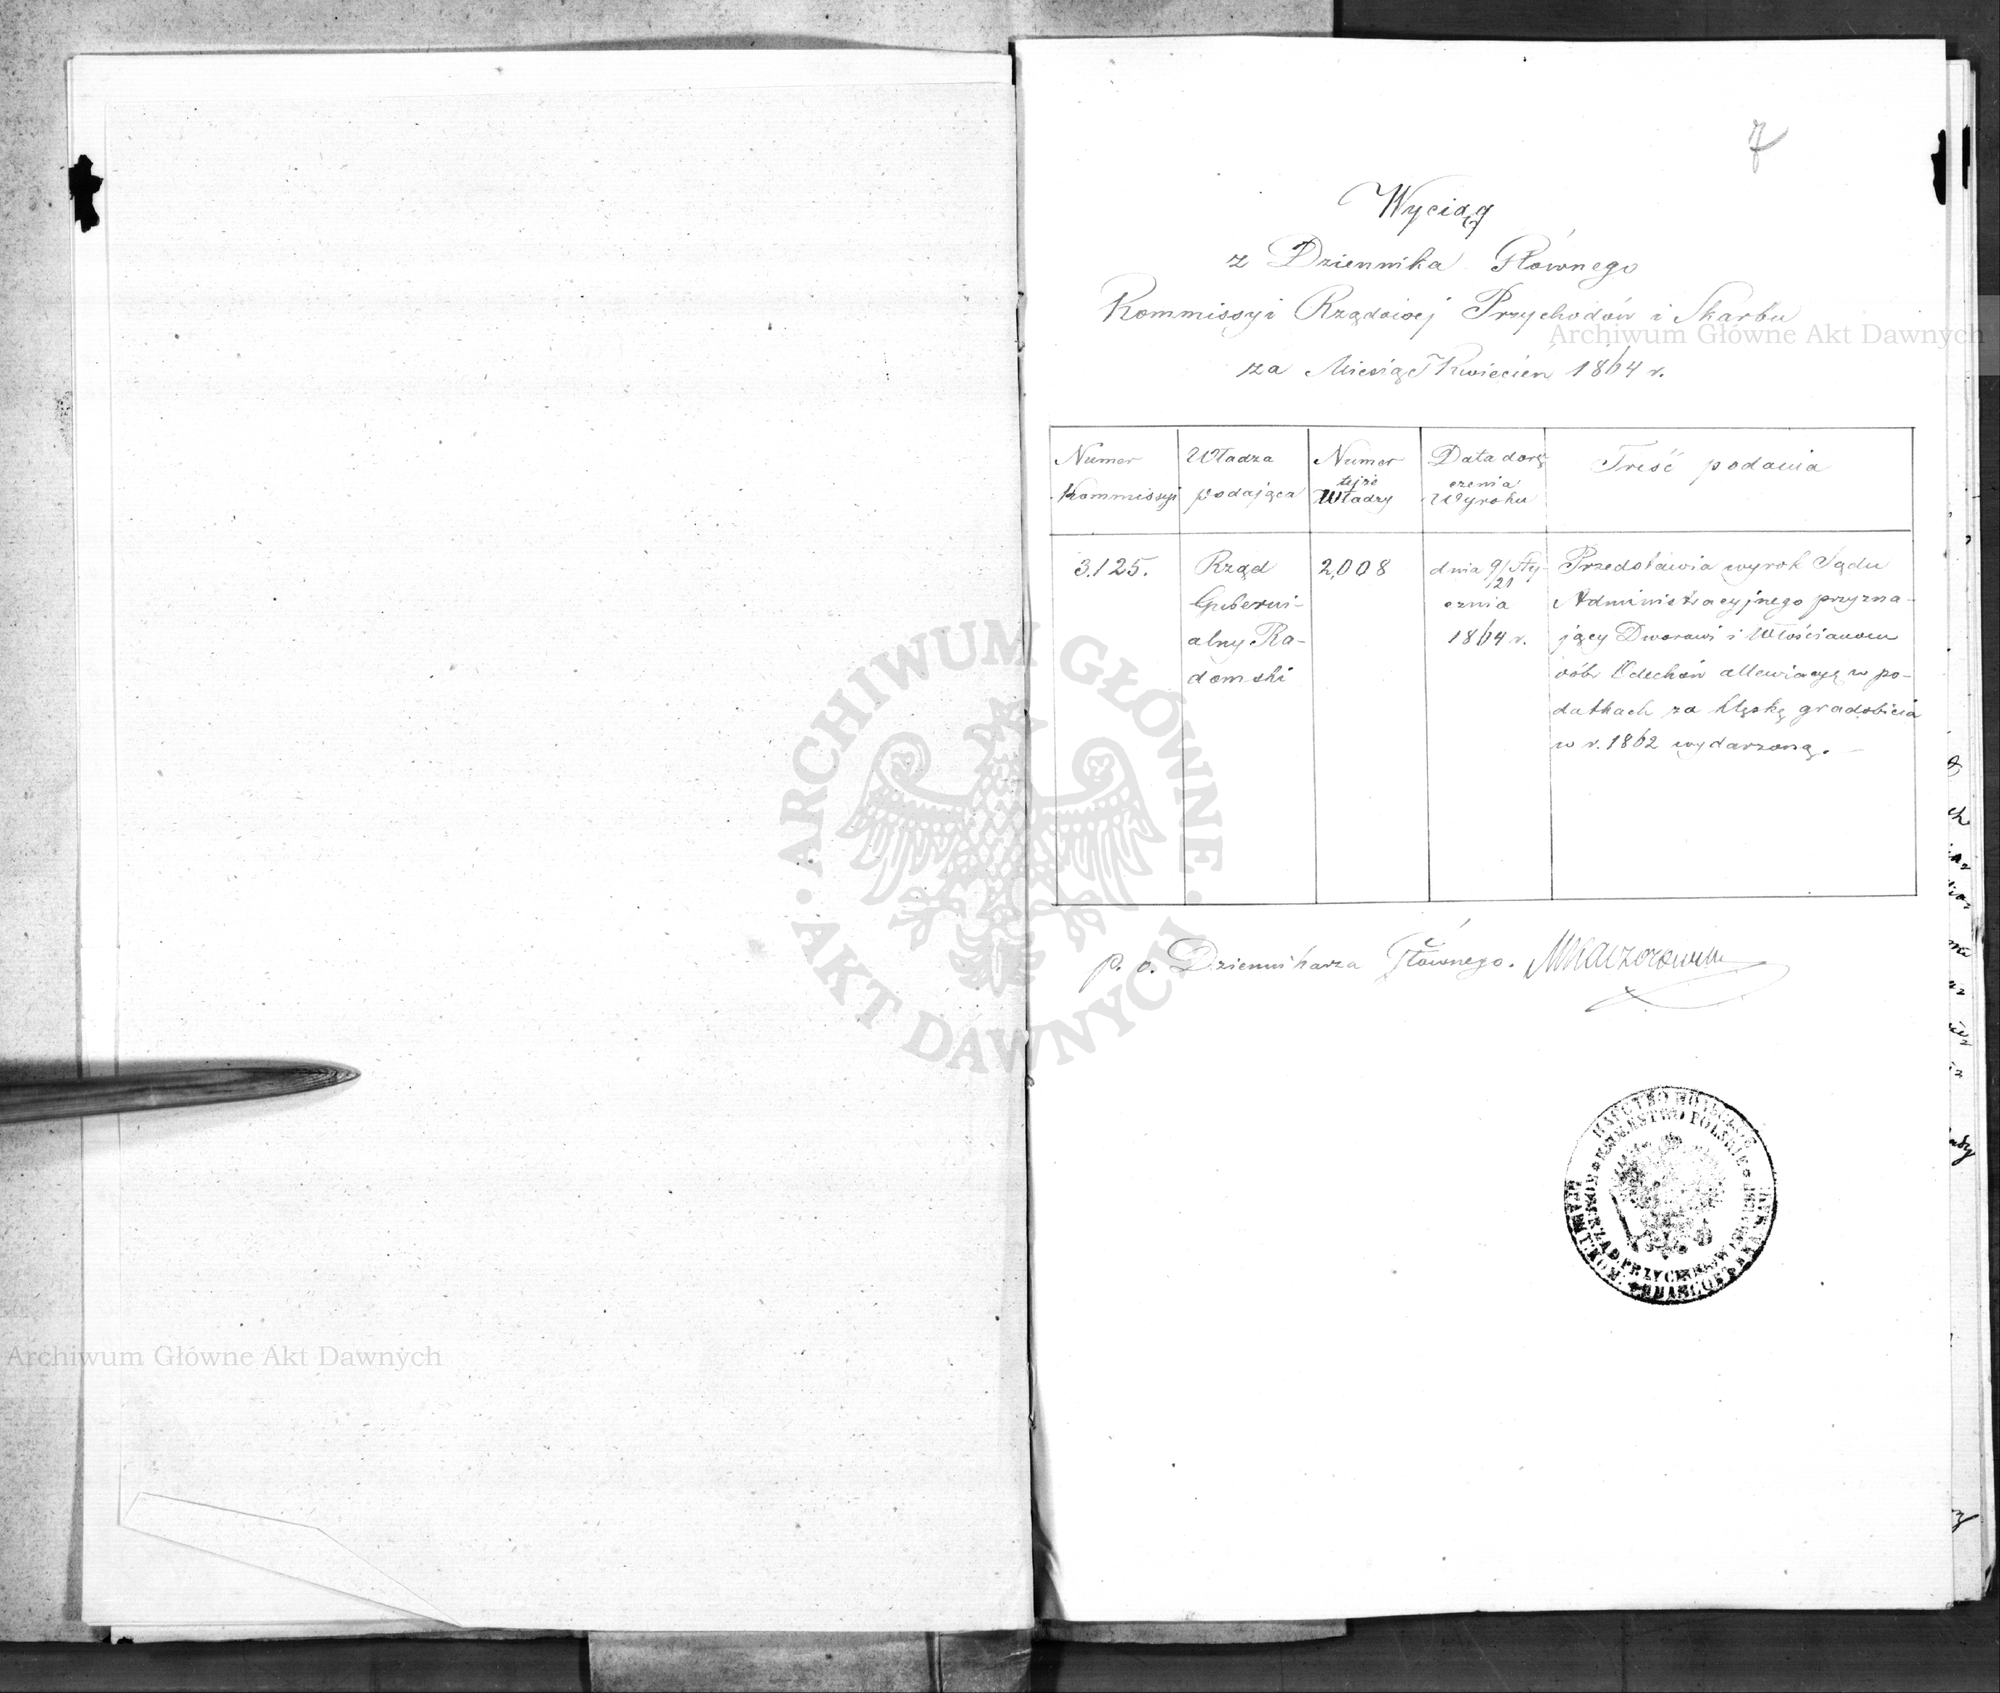 7
Wyciąg
z Dziennika Głównego
Kommissyi Rządowej Przychodów i Skarbu
za Miesiąc Kwiecień 1864 r.
Numer Kommissyi
Władza podająca
Numer tejże Władzy
Data dorę czenia Wyroku
Treść podania
3.125.
Rząd
Guberni-
alny Ra-
domski
2,008
dnia 9/21 Sty-
cznia
1864 r.
Przedstawia wyrok Sądu
Administracyjnego przyzna-
jący Dworowi i Włościanom
dóbr Odechów allewiacyę w po-
datkach za klęskę gradobicia
w r. 1862 wydarzoną.
p. o. Dziennikarza Głównego.
KRÓLESTWO POLSKIE
KOM: RZĄD: PRZYCH:
Archiwum Główne Akt Dawnych
Archiwum Główne Akt Dawnych
ARCHIWUM GŁÓWNE
AKT DAWNYCH